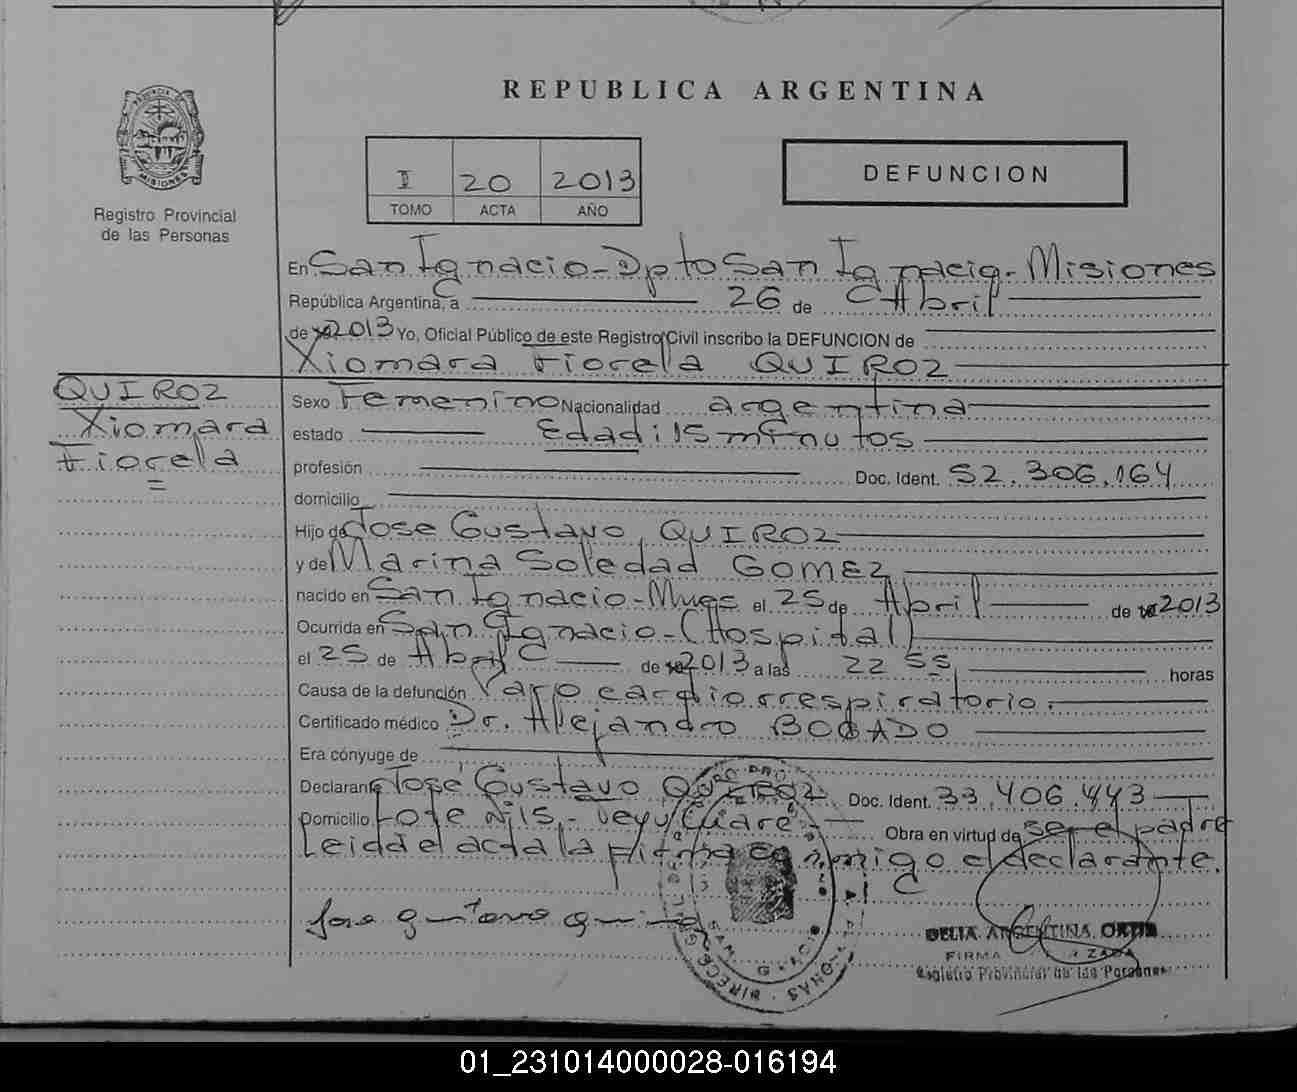 REPUBLICA ARGENTINA
PROVINCIA DE
MISIONES
Registro Provincial
de las Personas
I 20 2013
TOMO ACTA AÑO
DEFUNCION
En San Ignacio - Dpto San Ignacio - Misiones
República Argentina, a 26 de Abril
de 2013 Yo, Oficial Público de este Registro Civil inscribo la DEFUNCION de
Xiomara Fiorela QUIROZ
QUIROZ
Xiomara
Fiorela
Sexo Femenino Nacionalidad argentina
estado Edad: 15 minutos
profesión Doc. Ident. 52.306.164
domicilio
Hijo de Jose Gustavo QUIROZ
y de Marina Soledad GOMEZ
nacido en San Ignacio - Mnes el 25 de Abril de 2013
Ocurrida en San Ignacio - (Hospital)
el 25 de Abril de 2013 a las 22 55 horas
Causa de la defunción Paro cardiorrespiratorio.
Certificado médico Dr. Alejandro BOGADO
Era cónyuge de
Declarante José Gustavo QUIROZ Doc. Ident. 33.406.443
Domicilio Lote Nº 15 - Obra en virtud de ser el padre
Leida el acta la firma conmigo el declarante.
Jose Gustavo Quiroz
DELIA ARGENTINA ORTIZ
FIRMA
Registro Provincial de las Personas
01_231014000028-016194